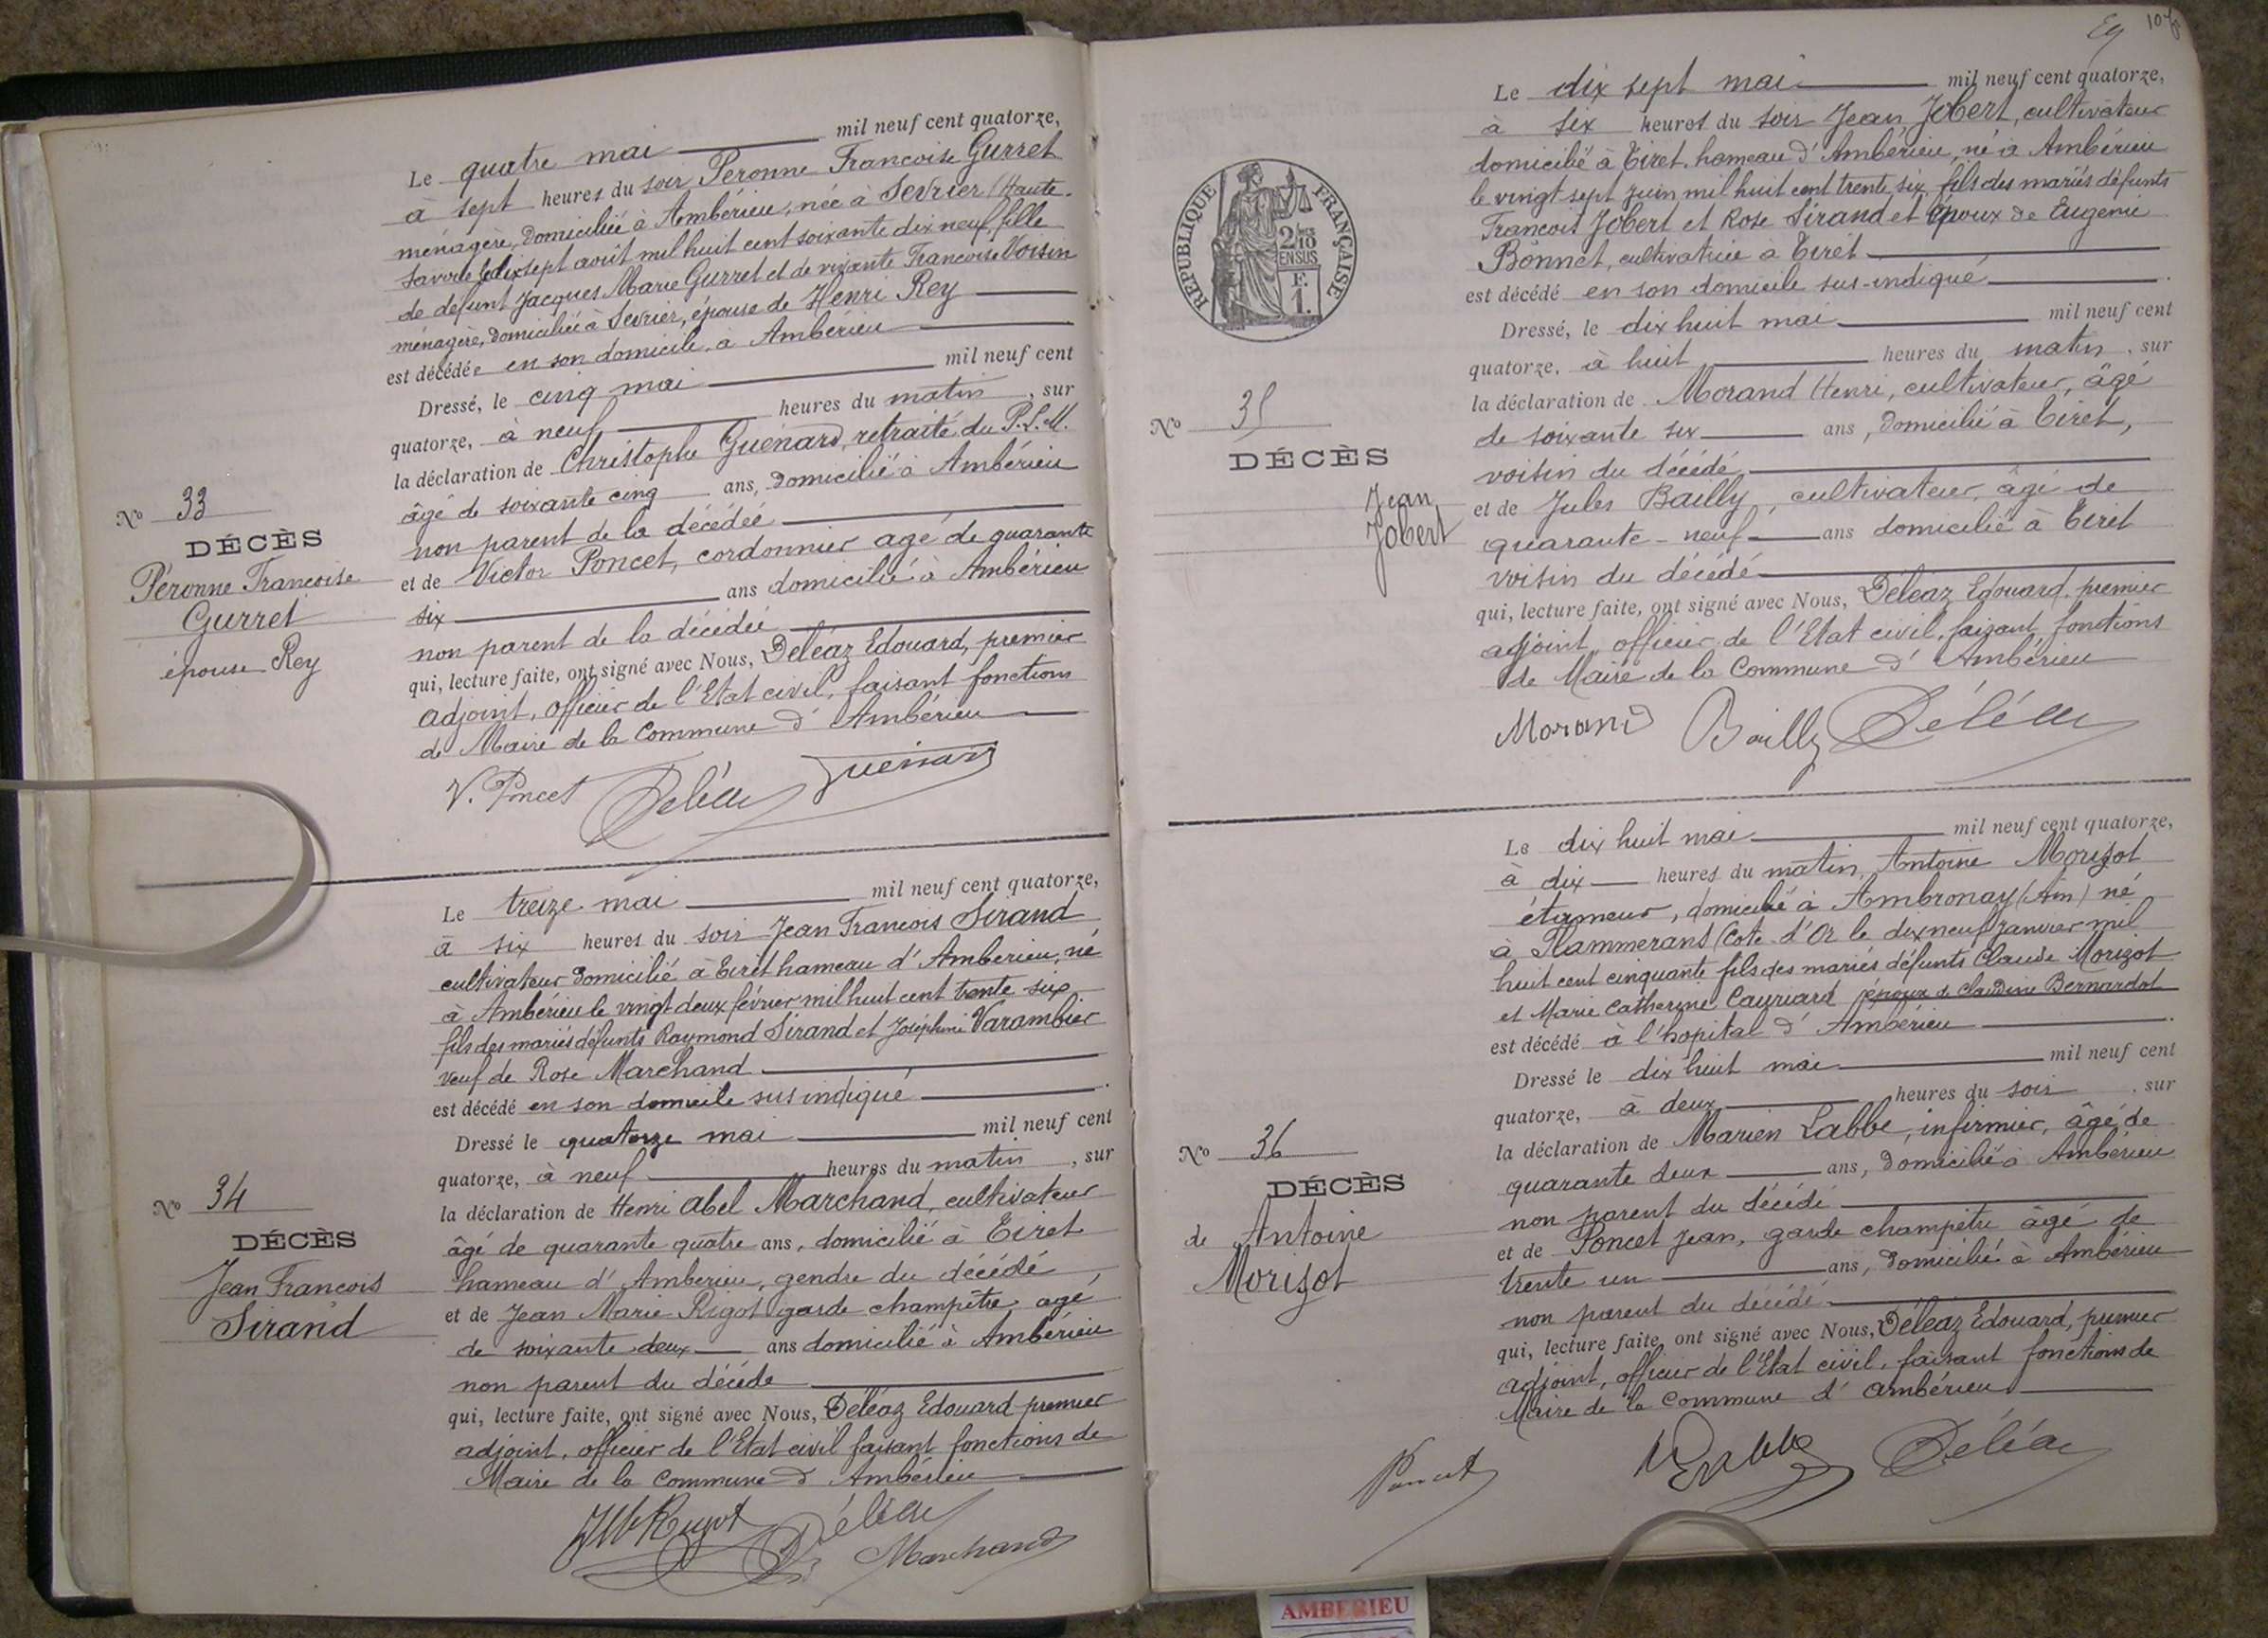 Le quatre mai mil neuf cent quatorze,
à sept heures du soir Peronne Francoise Gurret
ménagère, domiciliée à Ambérieu, née à Sevrier (Haute-
Savoie le dix sept août mil huit cent soixante dix neuf, fille
de défunt Jacques Marie Gurret et de vivante Francoise Voisin
ménagère, domiciliée à Sevrier, épouse de Henri Rey
est décédée en son domicile à Ambérieu
Dressé, le cinq mai mil neuf cent
quatorze, à neuf heures du matin, sur
la déclaration de Christophe Guénard, retraité du P.L.M.
âgé de soixante cinq ans, domicilié à Ambérieu
non parent de la décédée
et de Victor Poncet, cordonnier agé de quarante
six ans domicilié à Ambérieu
non parent de la décédée
qui, lecture faite, ont signé avec Nous, Déléaz Edouard, premier
adjoint, officier de l'Etat civil, faisant fonctions
de Maire de la Commune d'Ambérieu
V. Poncet Déléaz Guénard
No 33
DÉCÈS
Péronne Francoise
Gurret
épouse Rey
Le treize mai mil neuf cent quatorze,
à six heures du soir Jean Francois Sirand
cultivateur domicilié à Tiret hameau d'Ambérieu, né
à Ambérieu le vingt deux février mil huit cent trente six
fils des mariés défunts Raymond Sirand et Joséphine Varambier
veuf de Rose Marchand
est décédé en son domicile sus indiqué.
Dressé le quatorze mai mil neuf cent
quatorze, à neuf heures du matin, sur
la déclaration de Henri Abel Marchand, cultivateur
âgé de quarante quatre ans, domicilié à Tiret
hameau d'Ambérieu, gendre du décédé
et de Jean Marie Rigot garde champêtre, agé
de soixante deux ans domicilié à Ambérieu
non parent du décédé
qui, lecture faite, ont signé avec Nous, Déléaz Edouard premier
adjoint, officier de l'Etat civil faisant fonctions de
Maire de la Commune d'Ambérieu
JM Rigot Déléaz Marchand
No 34
DÉCÈS
Jean Francois
Sirand
107
Le dix sept mai mil neuf cent quatorze,
à six heures du soir Jean Jobert, cultivateur
domicilié à Tiret, hameau d'Ambérieu, né à Ambérieu
le vingt sept juin mil huit cent trente six, fils des mariés défunts
Francois Jobert et Rose Sirand et époux de Eugénie
Bonnet, cultivatrice à Tiret
est décédé en son domicile sus-indiqué.
Dressé, le dix huit mai mil neuf cent
quatorze, à huit heures du matin, sur
la déclaration de Morand Henri, cultivateur, âgé
de soixante six ans, domicilié à Tiret,
voisin du décédé
et de Jules Bailly, cultivateur, âgé de
quarante-neuf ans domicilié à Tiret
voisin du décédé
qui, lecture faite, ont signé avec Nous, Déléaz Edouard, premier
adjoint, officier de l'Etat civil, faisant fonctions
de Maire de la Commune d'Ambérieu
Morand Bailly Déléaz
RÉPUBLIQUE FRANÇAISE
2/10
EN SUS
F.
1.
No 35
DÉCÈS
Jean
Jobert
Le dix huit mai mil neuf cent quatorze,
à dix heures du matin, Antoine Morizot
étameur, domicilié à Ambronay (Ain) né
à Flammerans (Cote d'Or le dix neuf janvier mil
huit cent cinquante fils des mariés défunts Claude Morizot
et Marie Catherine époux de Claudine Bernardot
est décédé à l'hopital d'Ambérieu.
Dressé le dix huit mai mil neuf cent
quatorze, à deux heures du soir, sur
la déclaration de Marien Labbe, infirmier, âgé de
quarante deux ans, domicilié à Ambérieu
non parent du décédé
et de Poncet Jean, garde champêtre âgé de
trente un ans, domicilié à Ambérieu
non parent du décédé
qui, lecture faite, ont signé avec Nous, Déléaz Edouard, premier
adjoint, officier de l'Etat civil, faisant fonctions de
Maire de la Commune d'Ambérieu
Poncet Labbe Déléaz
No 36
DÉCÈS
de Antoine
Morizot
AMBERIEU